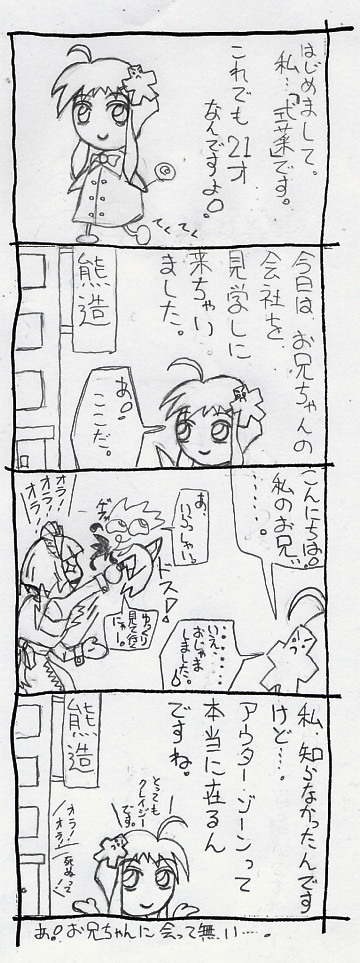 はじめまして。
私…「式菜」です。
これでも21才
なんですよ♪
てくてく
今日は、お兄ちゃんの
会社を
見学しに
来ちゃい
ました。
あ♪
ここだ。
熊造
こんにちは♪
私のお兄
……。
あ、
いらっしゃい。
ドスッ
オラ!
オラ!
オラ!
ゆっくり
……
いえ、
おじゃま
しました♪
私、知らなかったんです
けど…。
アウターゾーンって
本当に在るん
ですね。
とっても
クレイジー
です。
熊造
オラ!
オラ!
死ぬって
あ!お兄ちゃんに会って無い…。